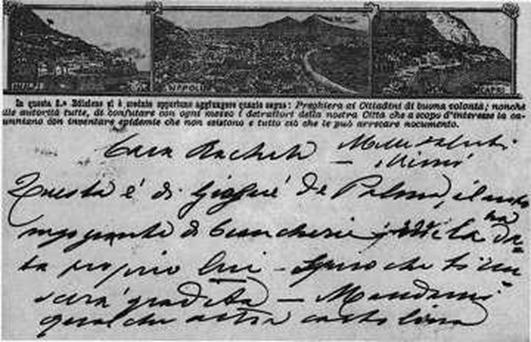 AMALFI NAPOLI CAPRI
In questa 2.a Edizione si è creduto opportuno aggiungere quanto segue: Preghiera ai Cittadini di buona volontà; nonchè
alle autorità tutte, di confutare con ogni mezzo i detrattori della nostra Città che a scopo d'interesse la ca-
lunniano con inventare epidemie che non esistono e tutto ciò che le può arrecare nocumento.
Cara Mille saluti
Mimì
Questa è di Giosuè de Palma, il noto
negoziante di biancherie, me la ha da-
ta proprio lui - Spero che ti riu-
scirà gradita - Mandami
qualche altra cartolina